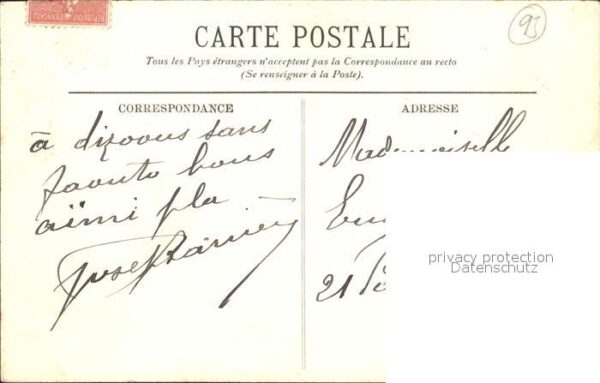 REPUBLIQUE FRANÇAISE
95
CARTE POSTALE
Tous les Pays étrangers n'acceptent pas la Correspondance au recto
(Se renseigner à la Poste).
CORRESPONDANCE
à dizoous sans
faouto bous
aïmi pla
ADRESSE
Mademoiselle
21
privacy protection
Datenschutz